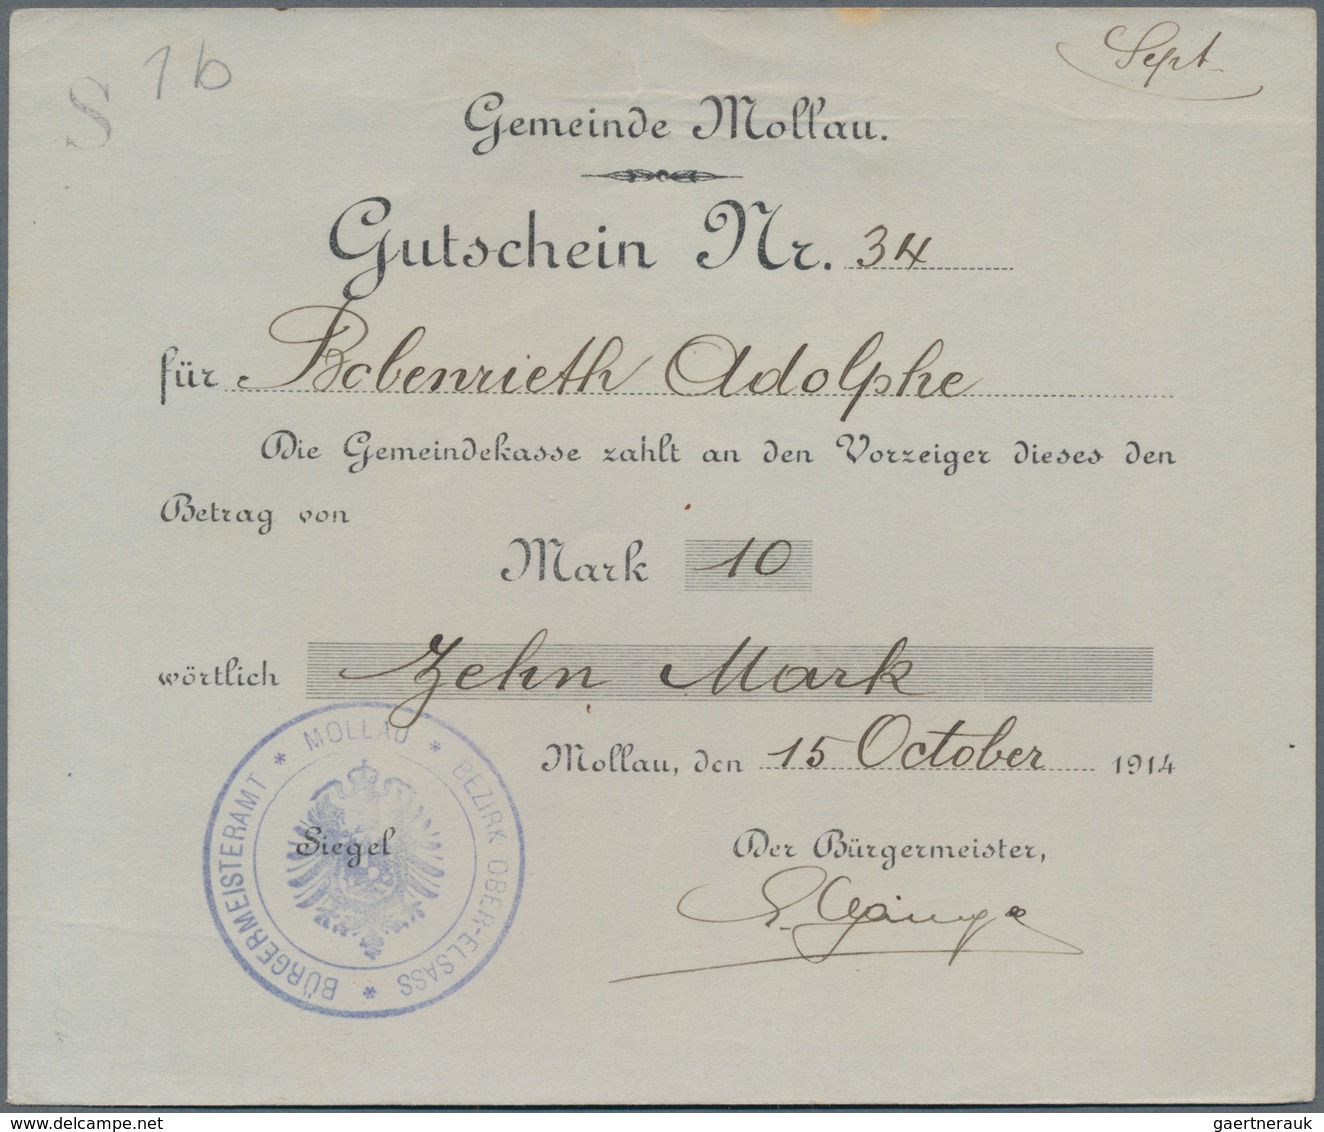 1b
S
Sept
Gemeinde Mollau.
Gutschein Nr. 34
für Bobenrieth Adolphe
Die Gemeindekasse zahlt an den Vorzeiger dieses den
Betrag von
Mark 10
wörtlich Zehn Mark
Mollau, den 15 October 1914
Siegel
Der Bürgermeister,
* MOLLAU * BEZIRK OBER-ELSASS * BÜRGERMEISTERAMT
www.delcampe.net
gaertnerauk